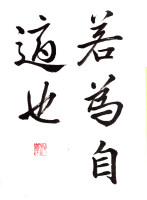 若為自
適也